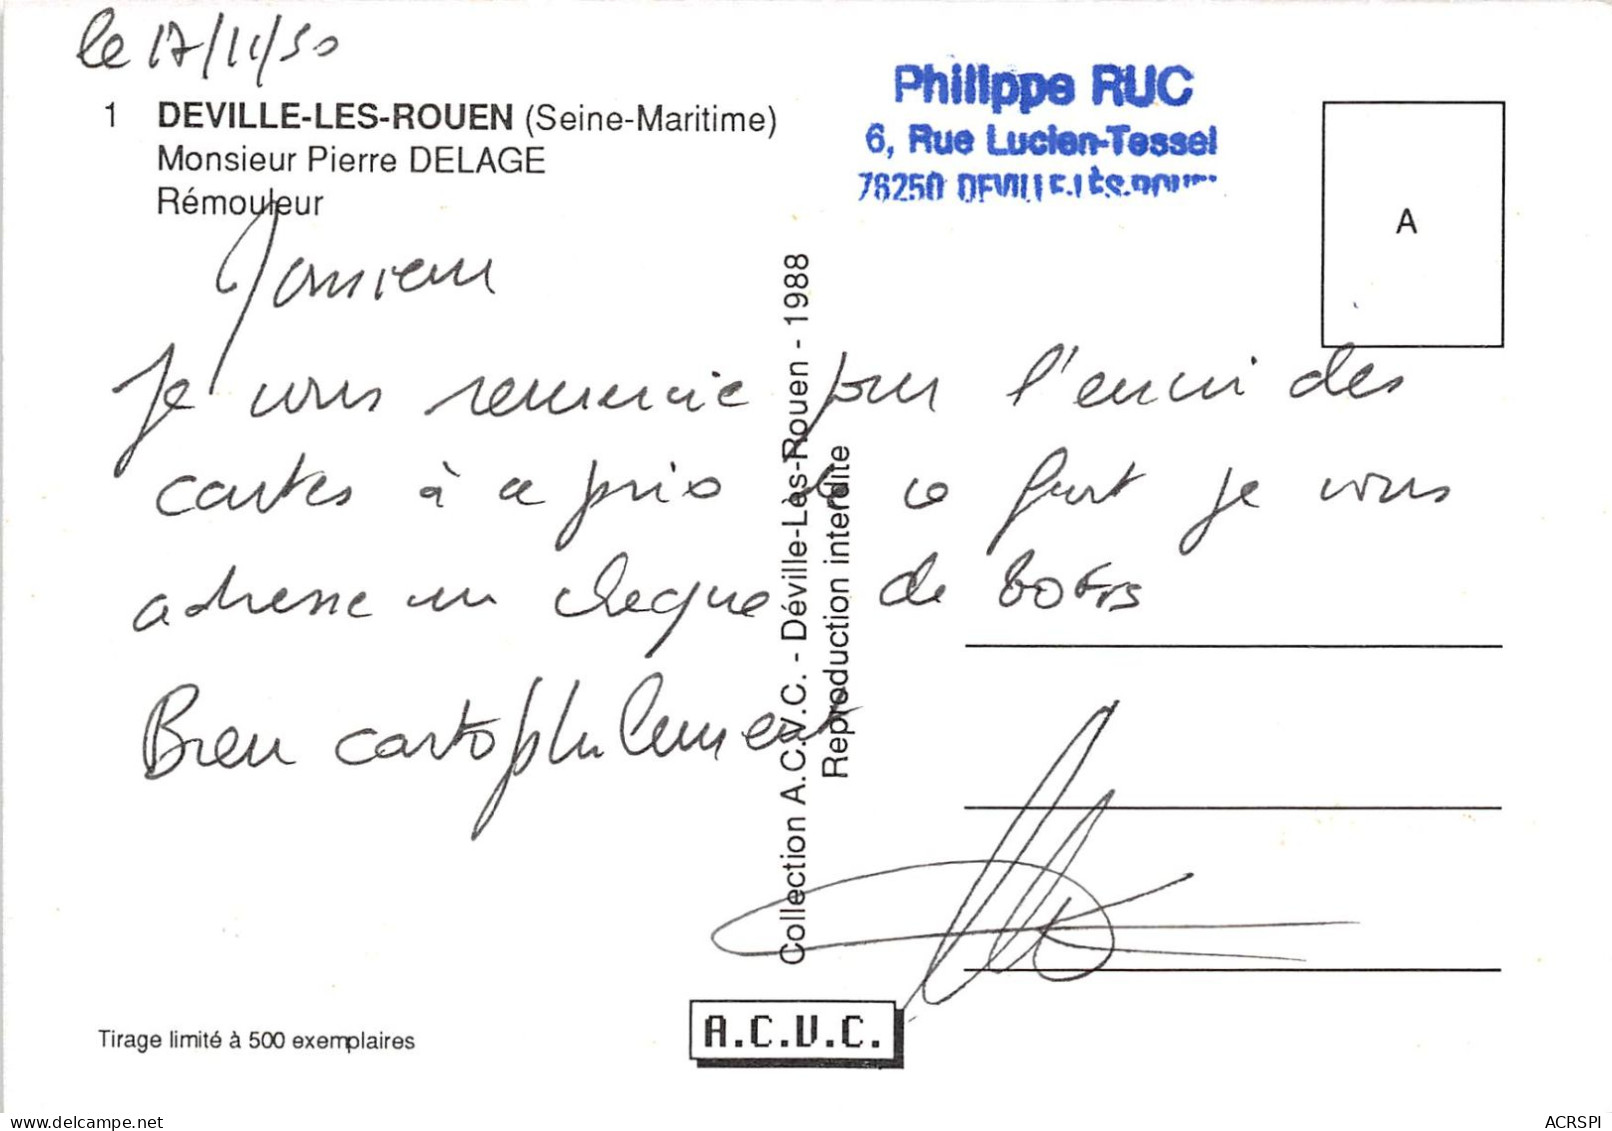 le 17/11/90
1 DEVILLE-LES-ROUEN (Seine-Maritime)
Monsieur Pierre DELAGE
Rémouleur
Philippe RUC
6, Rue Lucien-Tessel
76250 DEVILLE-LÈS-ROUEN
A
Monsieur
Je vous remercie pour l'envoi des
cartes à ce prix & co port je vous
adresse un cheque de Frs
Bien cartophilement
Collection A.C.V.C. - Déville-Lès-Rouen - 1988
Reproduction interdite
Tirage limité à 500 exemplaires
A.C.V.C.
ACRSPI